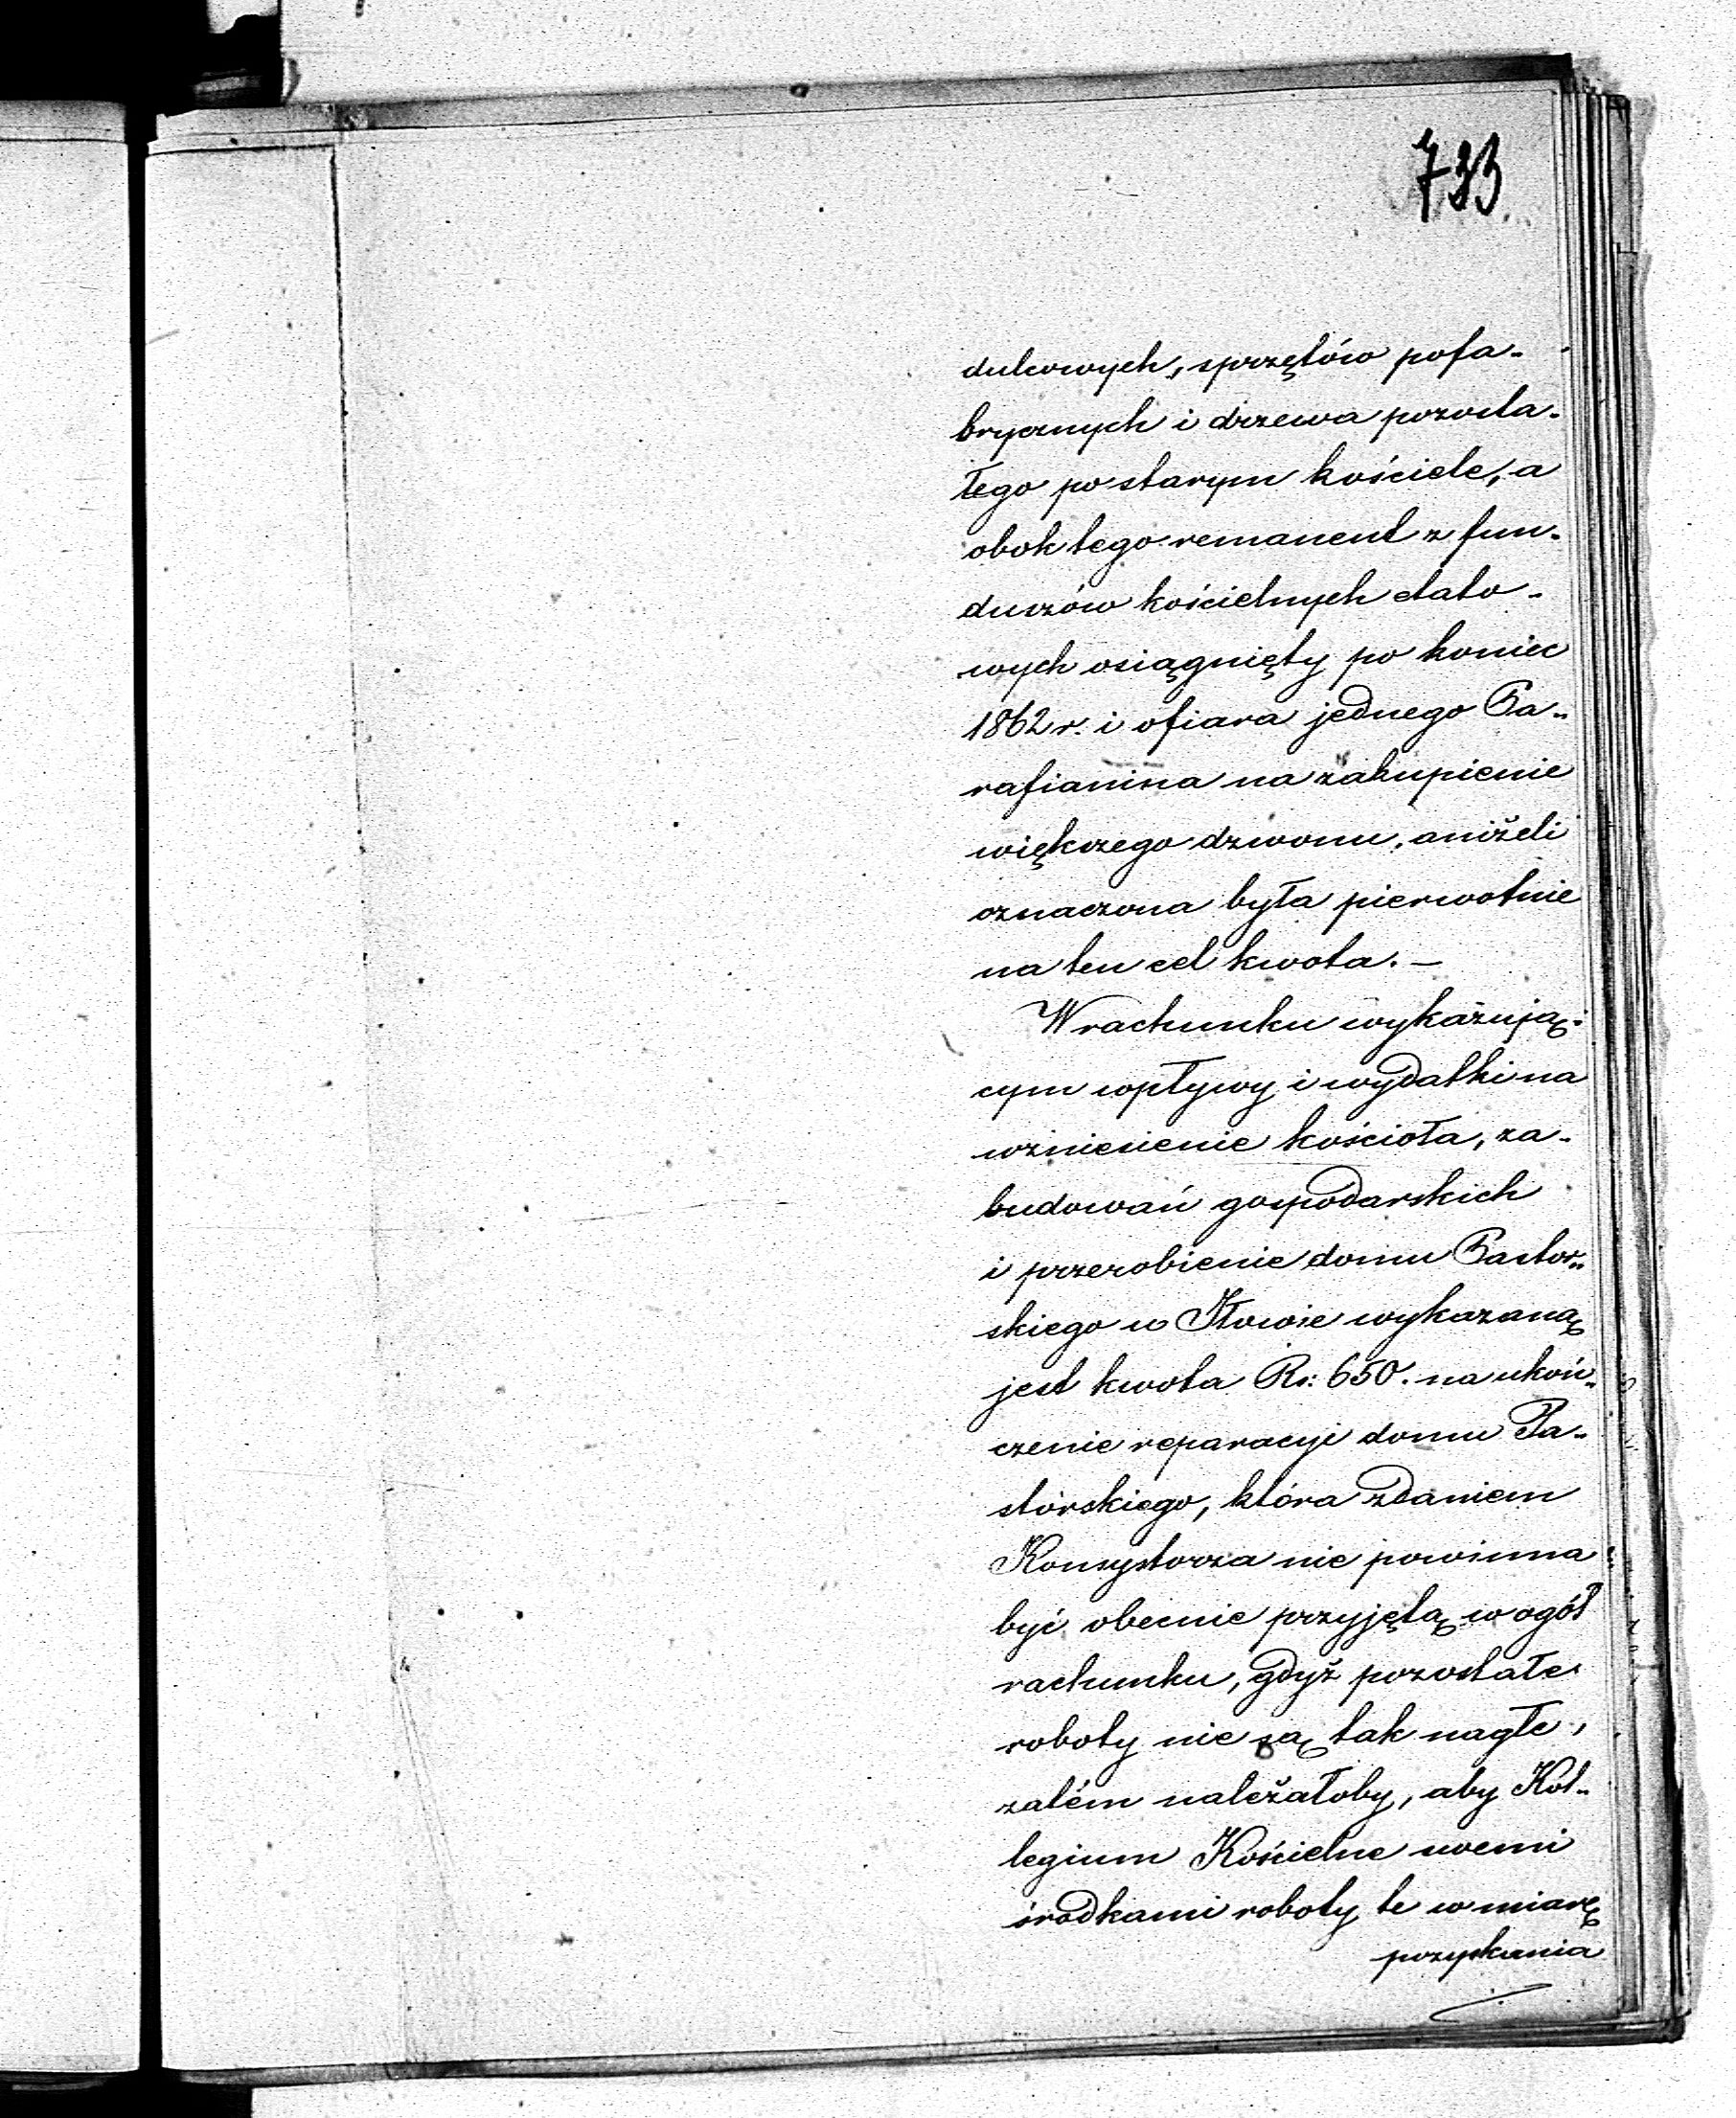 733
dulcowych, sprzętów pofa-
brycznych i drzewa pozosta-
łego po starym kościele, a
obok tego remanent z fun-
duszów kościelnych etato-
wych osiągnięty po koniec
1862 r. i ofiara jednego Pa-
rafianina na zakupienie
większego dzwonu, aniżeli
oznaczona była pierwotnie
na ten cel kwota. —
W rachunku wykazują-
cym wpływy i wydatki na
wzniesienie kościoła, za-
budowań gospodarskich
i przerobienie domu Pastor-
skiego w Iłowie wykazaną
jest kwota Rs: 650. na ukoń-
czenie reparacyi domu Pa-
storskiego, która zdaniem
Konsystorza nie powinna
być obecnie przyjętą w ogół
rachunku, gdyż pozostałe
roboty nie są tak nagłe,
zatém należałoby, aby Kol-
legium Kościelne swemi
środkami roboty te w miarę
pozyskania